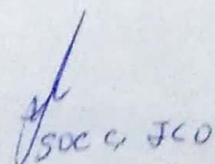 SOC C, JCO